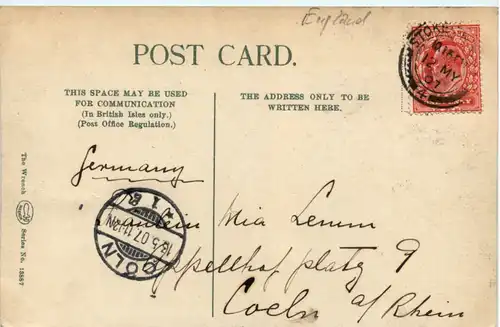 England
POST CARD.
THIS SPACE MAY BE USED
FOR COMMUNICATION
(In British Isles only.)
(Post Office Regulation.)
THE ADDRESS ONLY TO BE
WRITTEN HERE.
STOKE
12 MY
07
Germany
Fräulein Mia Lemm
Appellhofplatz 9
Coeln a/Rhein
CÖLN
The Wrench Series No. 13887